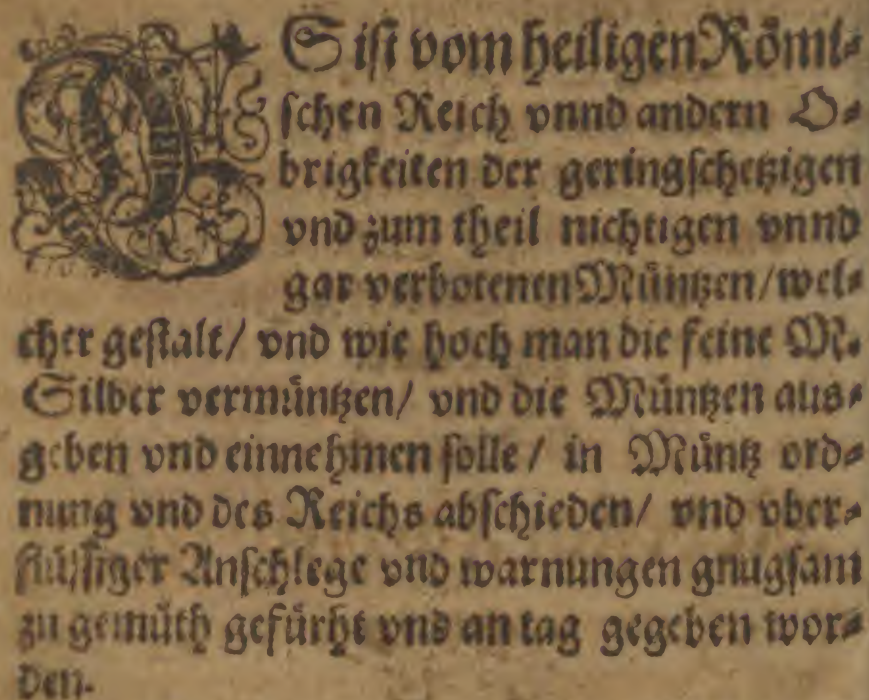 ES ist vom heiligen Römi⸗
schen Reich vnnd andern O⸗
brigkeiten der geringschetzigen
vnd zum theil nichtigen vnnd
gar verbotenen Müntzen/ wel⸗
cher gestalt/ vnd wie hoch man die feine M.
Silber vermüntzen/ vnd die Müntzen aus⸗
geben vnd einnehmen solle / in Müntz ord⸗
nung vnd des Reichs abschieden/ vnd vber⸗
flüssiger Anschlege vnd warnungen gnugsam
zu gemüth geführt vnd an tag gegeben wor⸗
den.